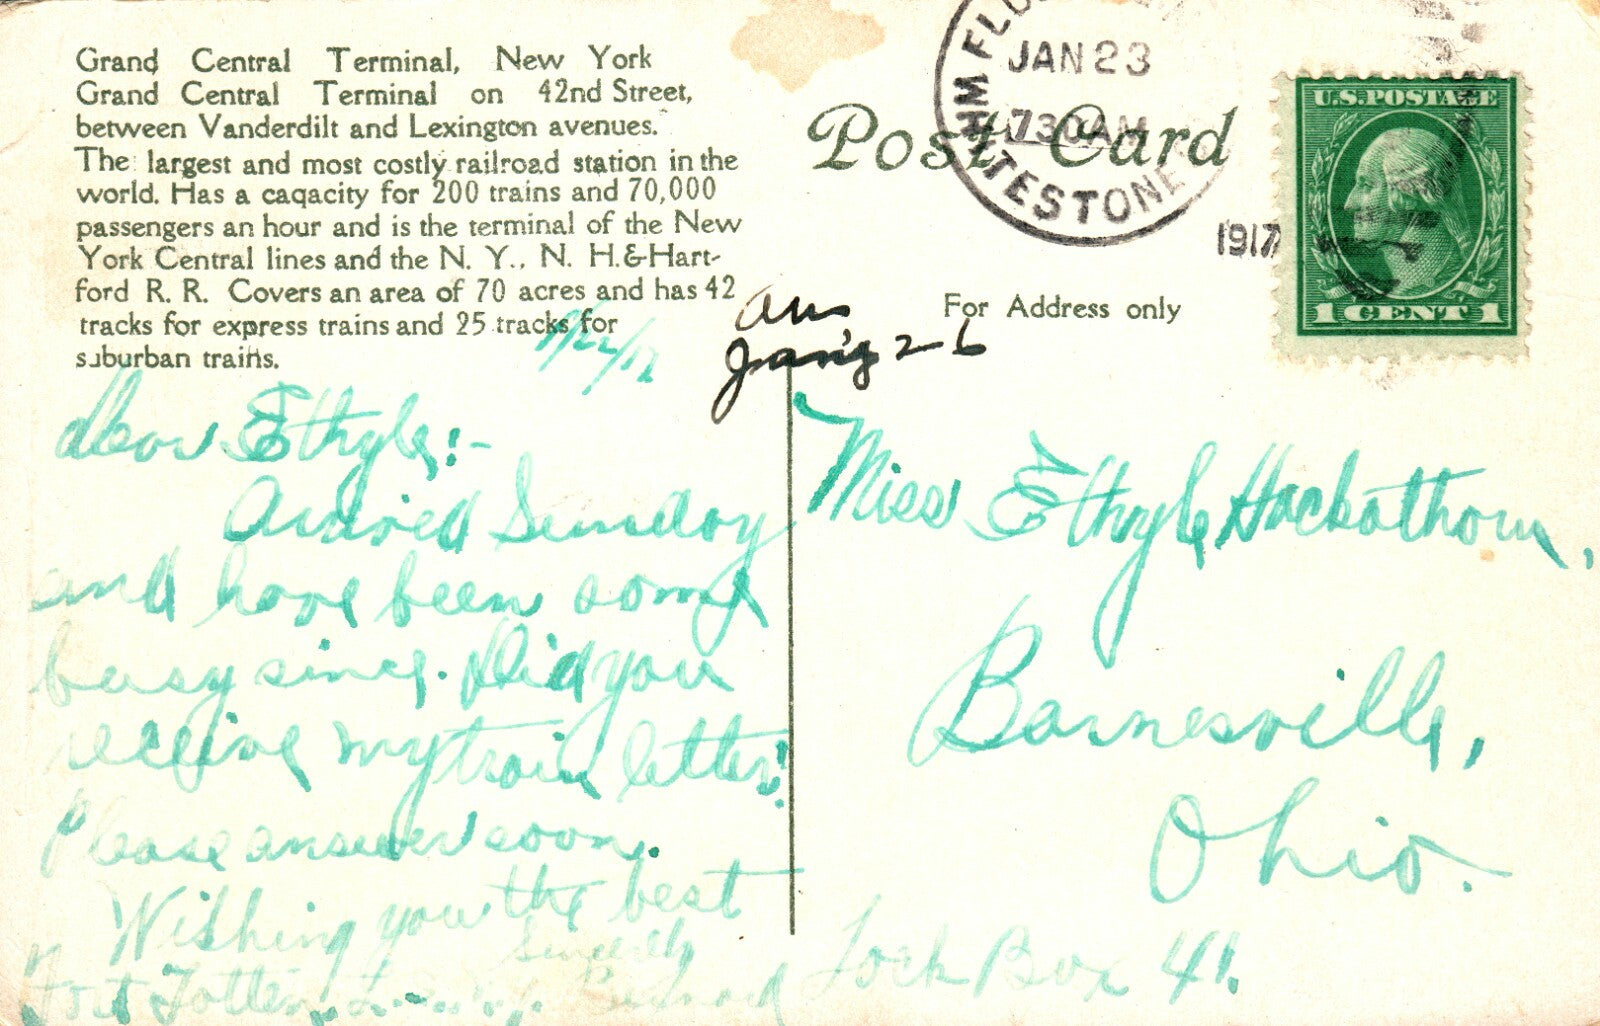 Grand Central Terminal, New York
Grand Central Terminal on 42nd Street,
between Vanderdilt and Lexington avenues.
The largest and most costly railroad station in the
world. Has a caqacity for 200 trains and 70,000
passengers an hour and is the terminal of the New
York Central lines and the N. Y., N. H. & Hart-
ford R. R. Covers an area of 70 acres and has 42
tracks for express trains and 25 tracks for
suburban trains.
1/22/17
Dear Ethyle:-
Arrived Sunday
and have been some
busy since. Did you
receive my train letter?
Please answer soon.
Wishing you the best
Sincerely
Fort Totten, Bernard
Post Card
JAN 23
730 AM
WHITESTONE
1917
U.S. POSTAGE
1 CENT 1
For Address only
Ans
Jan'y 26
Miss Ethyle Hackathorn,
Barnesville,
Ohio.
Lock Box 41.